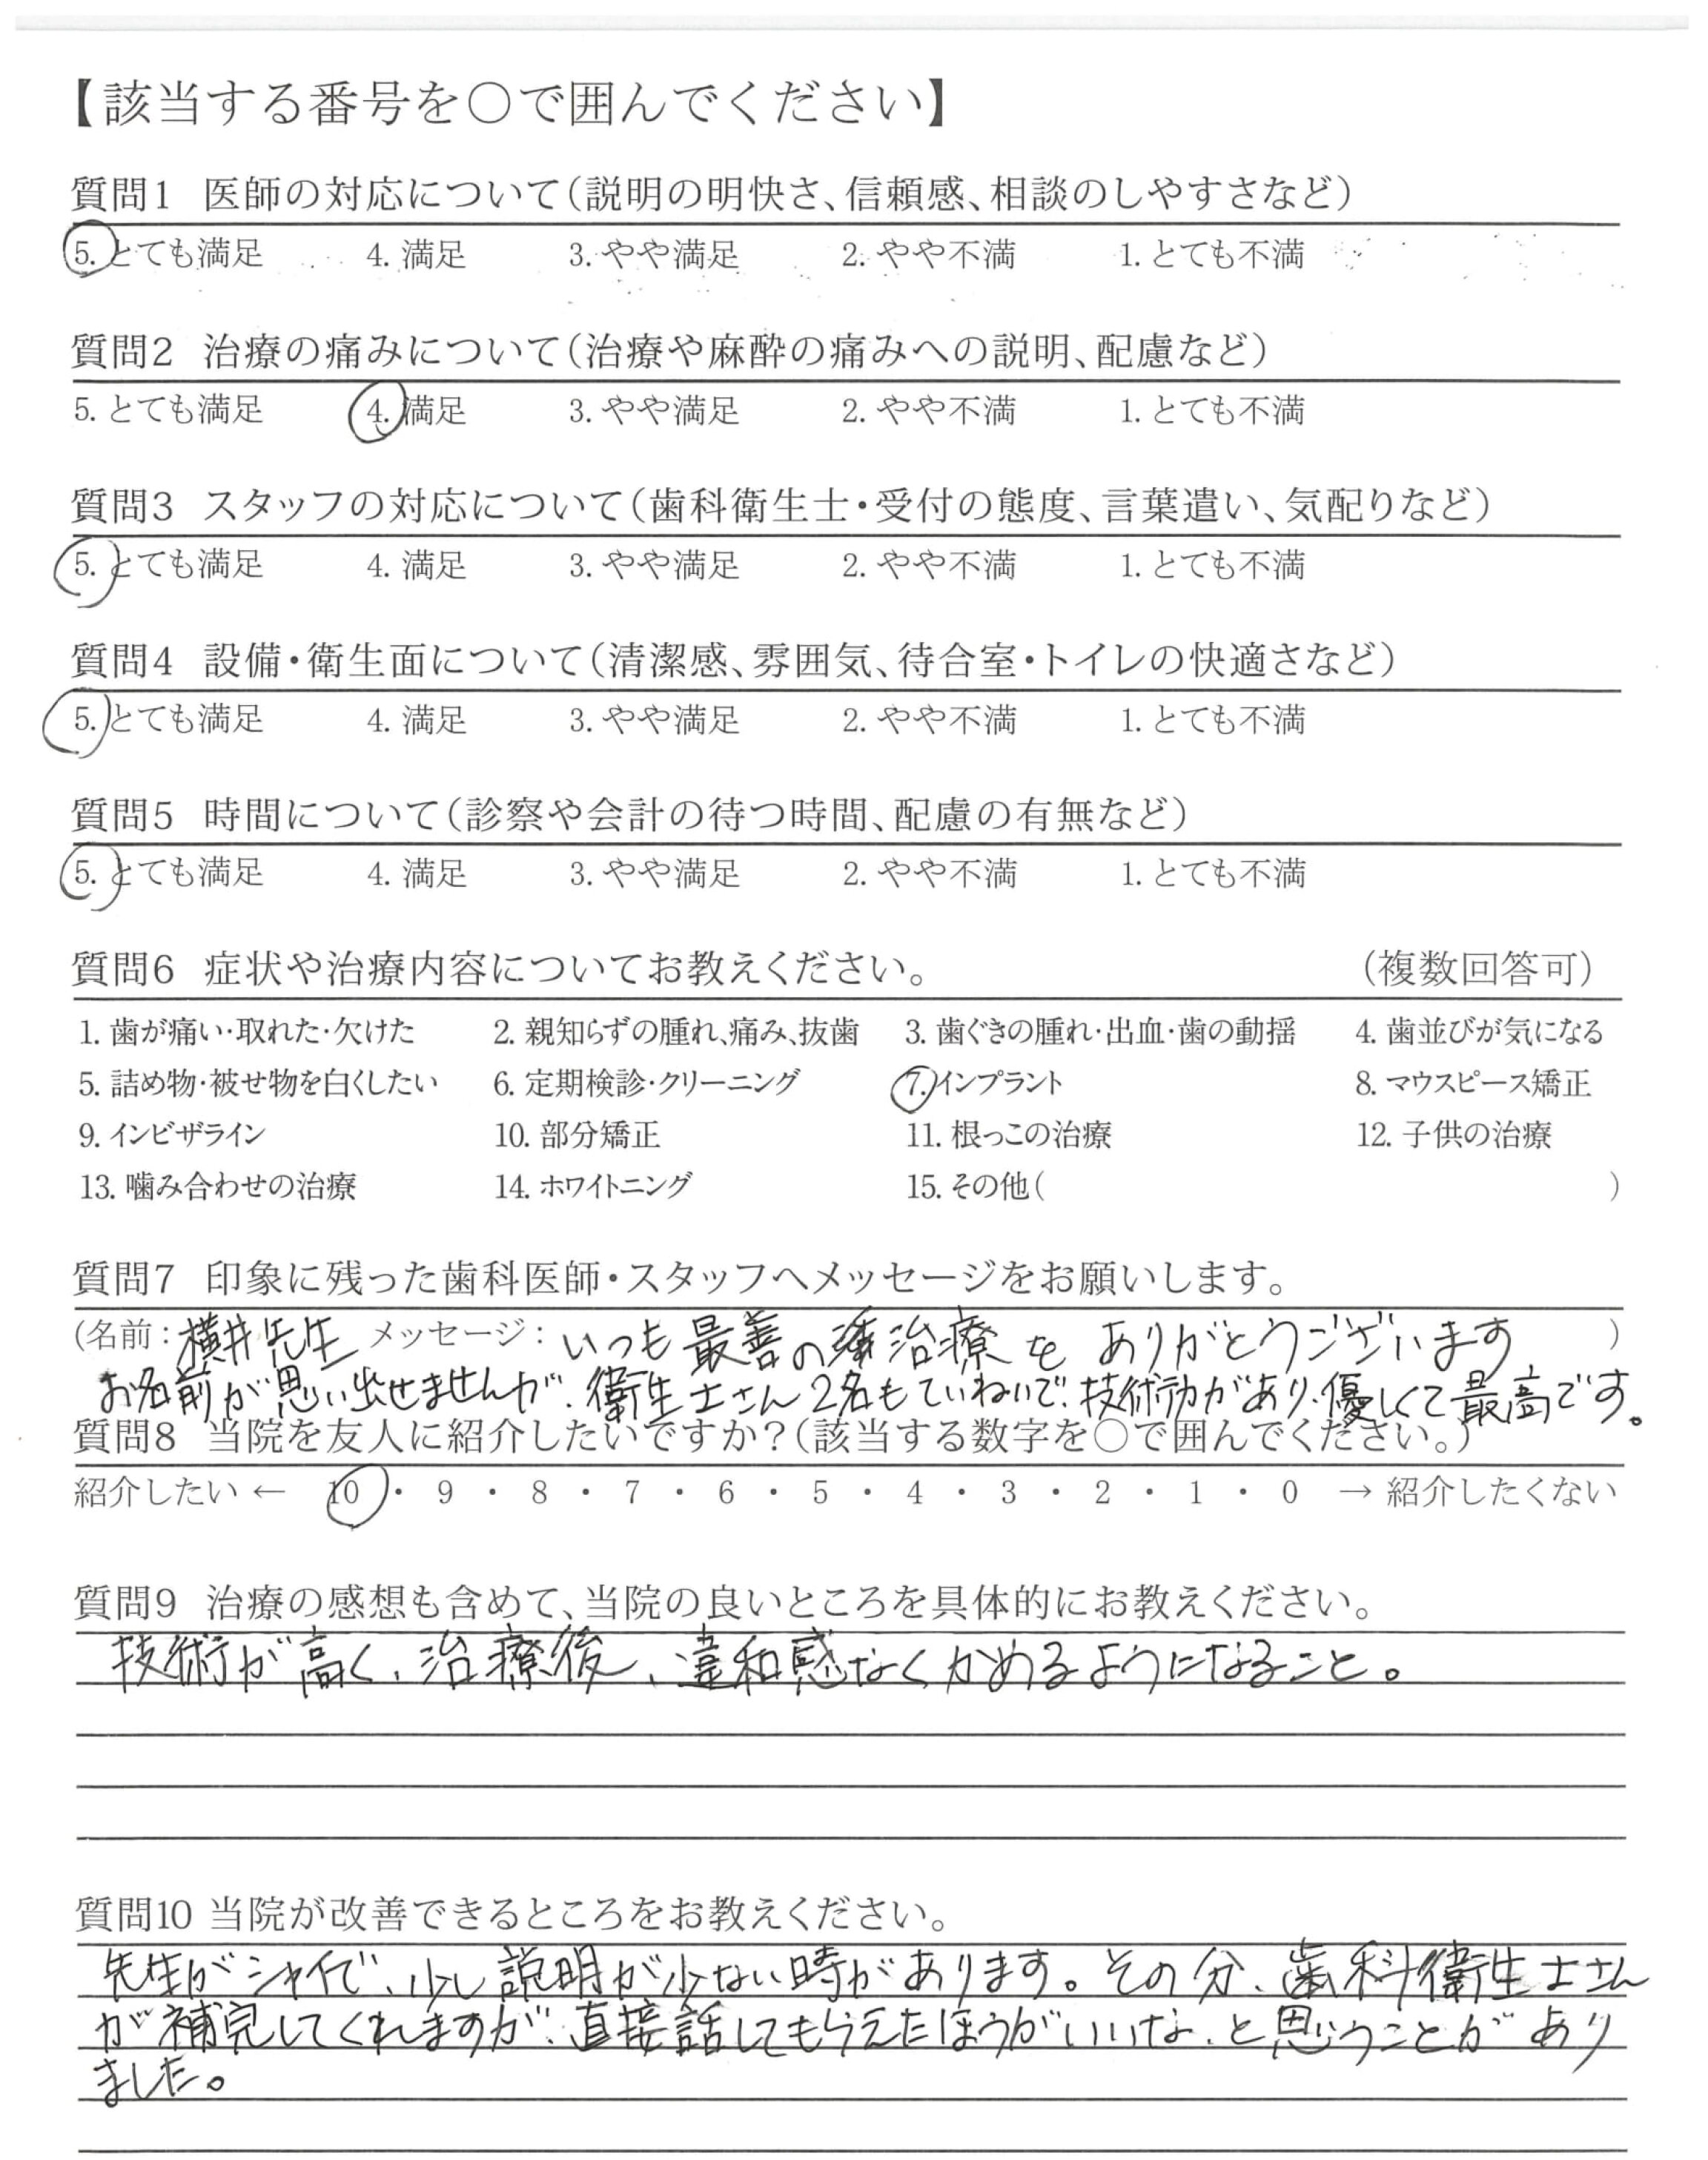 【該当する番号を○で囲んでください】
質問1 医師の対応について(説明の明快さ、信頼感、相談のしやすさなど)
5. とても満足 4. 満足 3. やや満足 2. やや不満 1. とても不満
質問2 治療の痛みについて(治療や麻酔の痛みへの説明、配慮など)
5. とても満足 4. 満足 3. やや満足 2. やや不満 1. とても不満
質問3 スタッフの対応について(歯科衛生士・受付の態度、言葉遣い、気配りなど)
5. とても満足 4. 満足 3. やや満足 2. やや不満 1. とても不満
質問4 設備・衛生面について(清潔感、雰囲気、待合室・トイレの快適さなど)
5. とても満足 4. 満足 3. やや満足 2. やや不満 1. とても不満
質問5 時間について(診察や会計の待つ時間、配慮の有無など)
5. とても満足 4. 満足 3. やや満足 2. やや不満 1. とても不満
質問6 症状や治療内容についてお教えください。 (複数回答可)
1. 歯が痛い・取れた・欠けた 2. 親知らずの腫れ、痛み、抜歯 3. 歯ぐきの腫れ・出血・歯の動揺 4. 歯並びが気になる
5. 詰め物・被せ物を白くしたい 6. 定期検診・クリーニング 7. インプラント 8. マウスピース矯正
9. インビザライン 10. 部分矯正 11. 根っこの治療 12. 子供の治療
13. 噛み合わせの治療 14. ホワイトニング 15. その他( )
質問7 印象に残った歯科医師・スタッフへメッセージをお願いします。
(名前: 横井先生 メッセージ: いつも最善の治療をありがとうございます )
お名前が思い出せませんが、衛生士さん2名もていねいで、技術力があり、優しくて最高です。
質問8 当院を友人に紹介したいですか?(該当する数字を○で囲んでください。)
紹介したい ← 10 ・ 9 ・ 8 ・ 7 ・ 6 ・ 5 ・ 4 ・ 3 ・ 2 ・ 1 ・ 0 → 紹介したくない
質問9 治療の感想も含めて、当院の良いところを具体的にお教えください。
技術が高く、治療後、違和感なくかめるようになること。
質問10 当院が改善できるところをお教えください。
先生がシャイで、少し説明が少ない時があります。その分、歯科衛生士さん
が補完してくれますが、直接話してもらえたほうがいいな、と思うことがあり
ました。